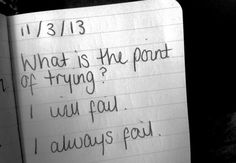 11/3/13
What is the point
of trying?
I will fail.
I always fail.